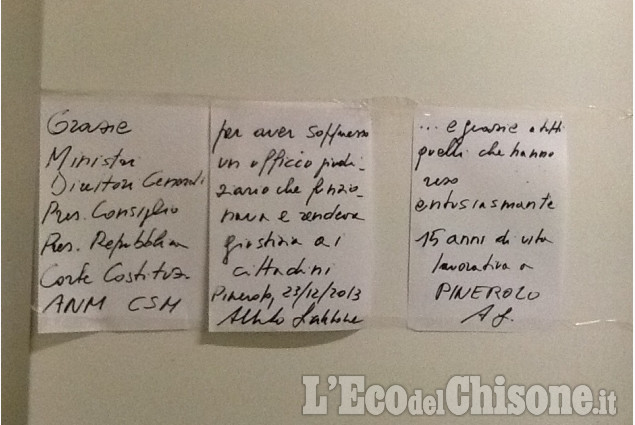 Grazie
Ministri
Direttori Generali
Pres. Consiglio
Pres. Repubblica
Corte Costituz.
ANM CSM
per aver soppresso
un ufficio giudi-
ziario che funzio-
nava e rendeva
giustizia ai
cittadini
Pinerolo, 23/12/2013
... e grazie a tutti
quelli che hanno
reso
entusiasmante
15 anni di vita
lavorativa a
PINEROLO
L'EcodelChisone.it